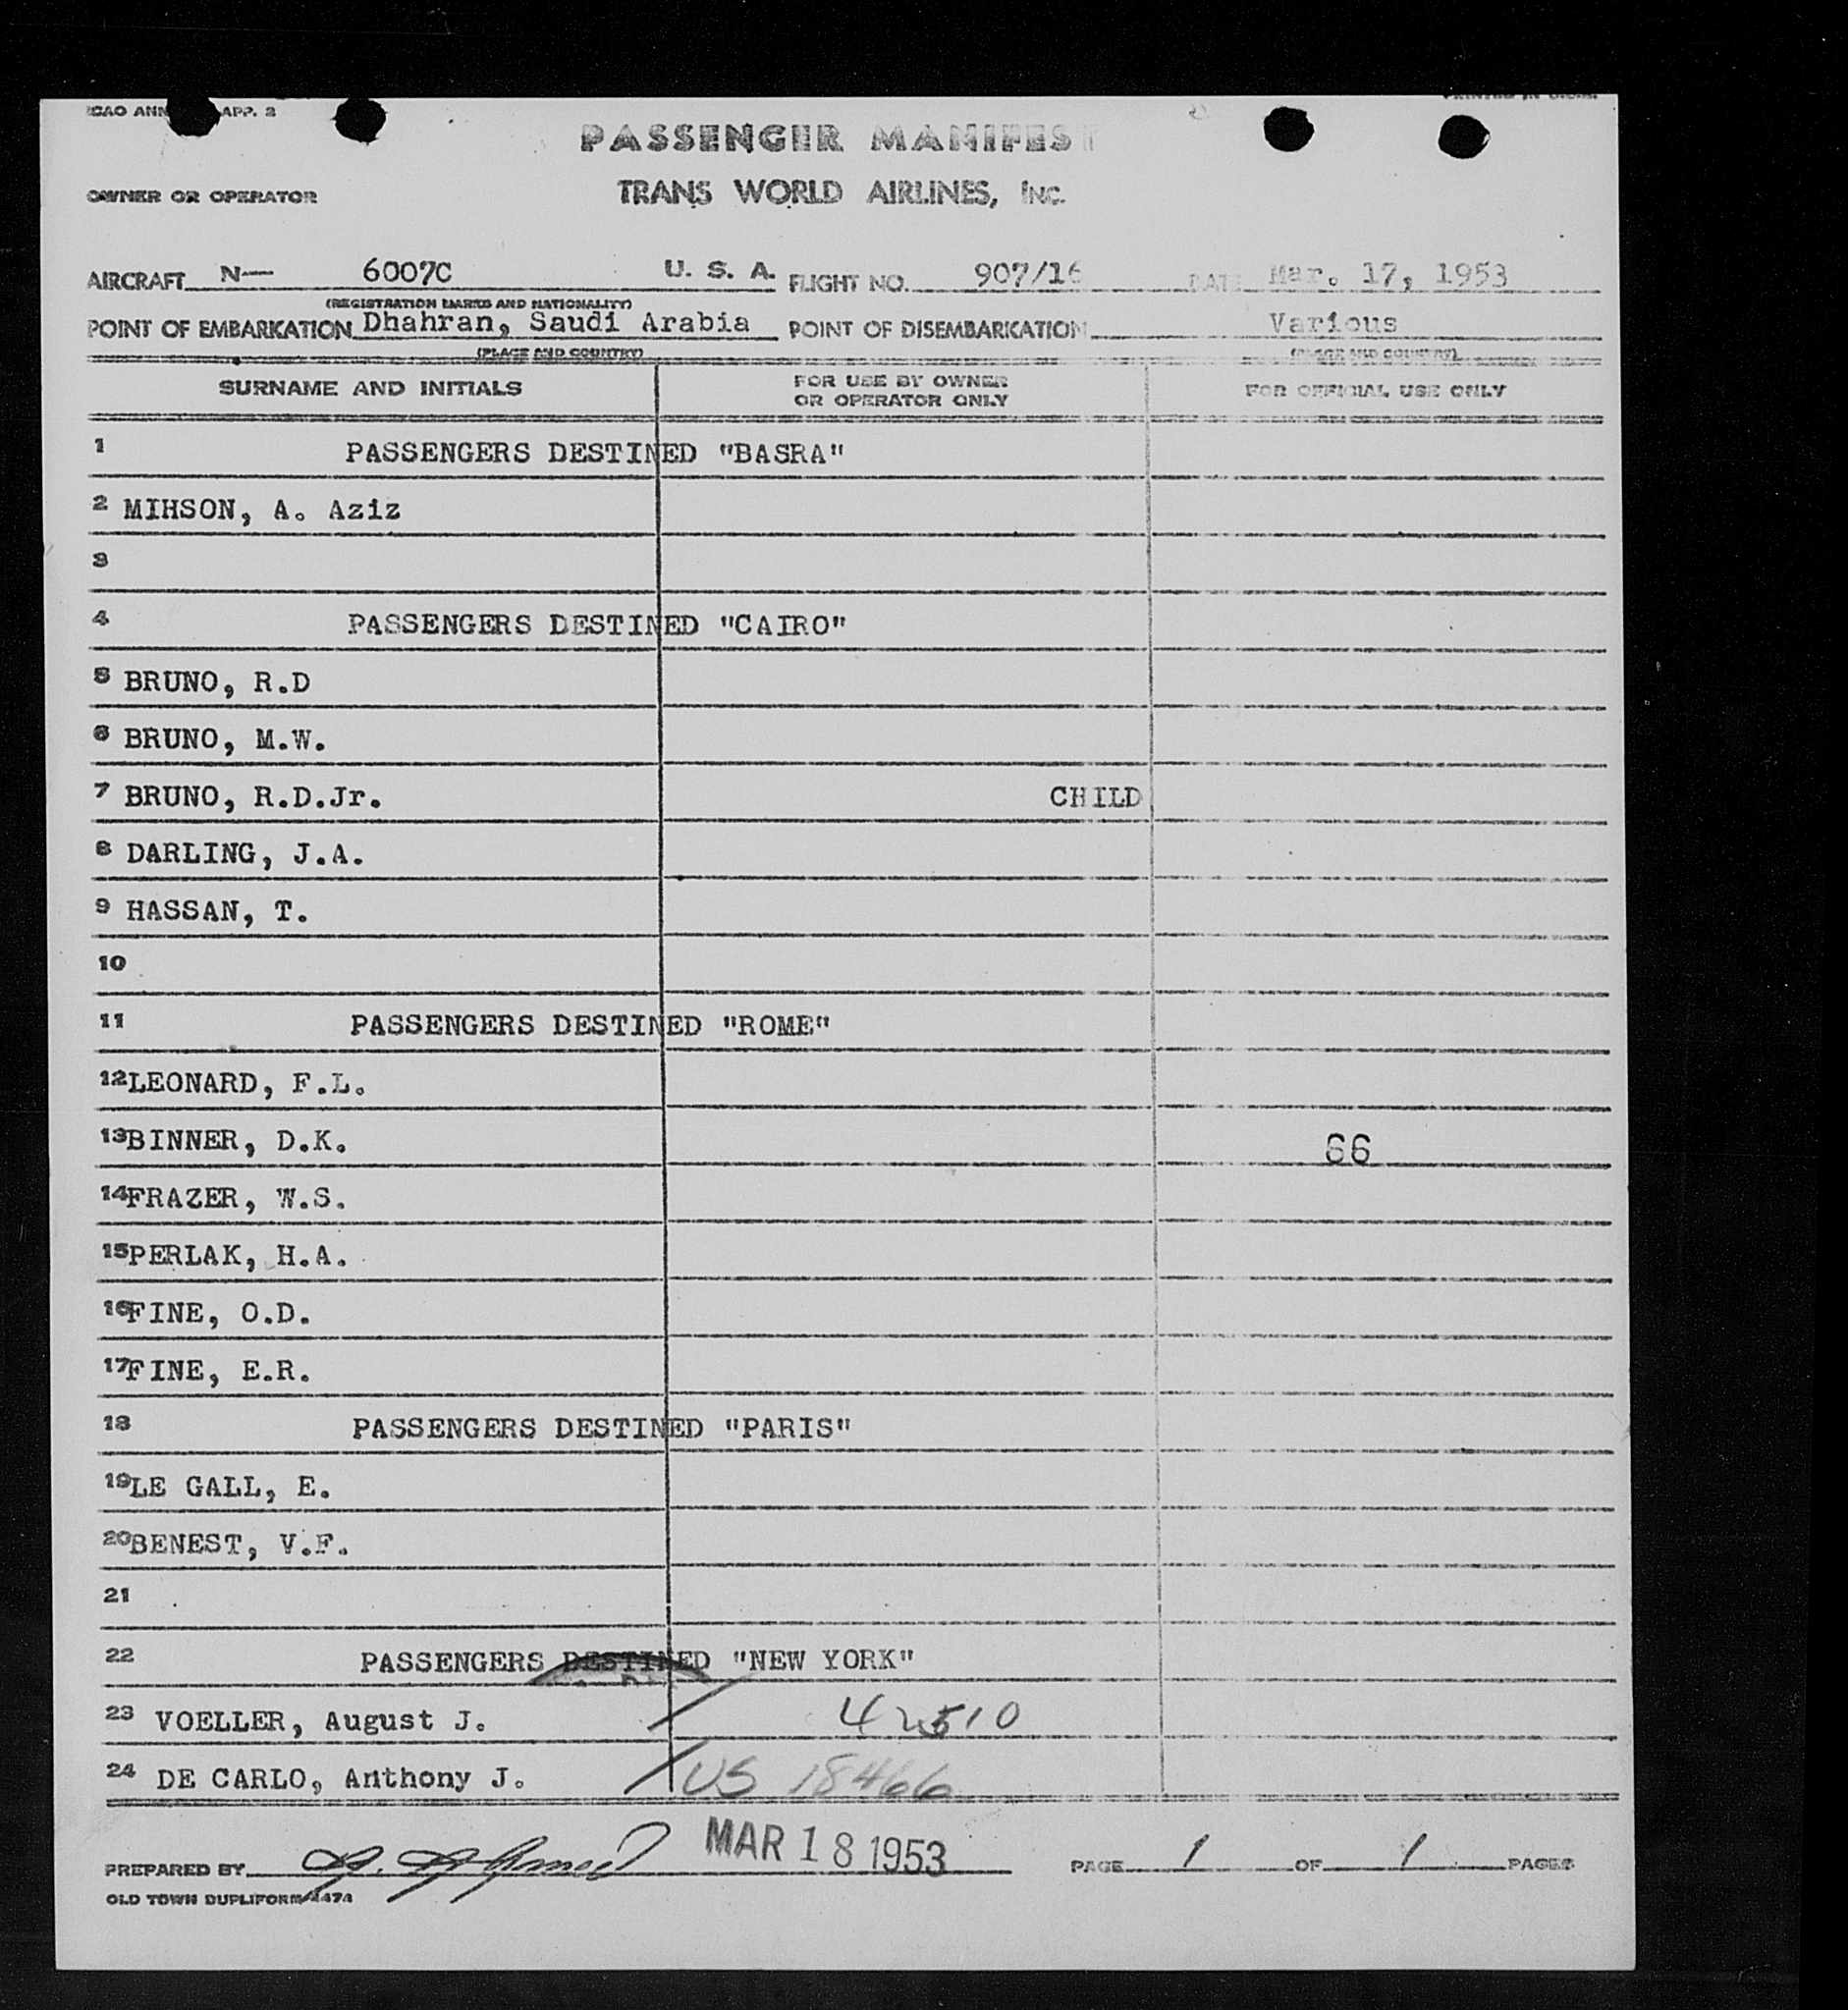 ICAO ANN APP. 2
PRINTED IN U.S.A.
PASSENGER MANIFEST
OWNER OR OPERATOR TRANS WORLD AIRLINES, INC.
AIRCRAFT N— 6007C U. S. A. FLIGHT NO. 907/16 DATE Mar. 17, 1953
(REGISTRATION MARKS AND NATIONALITY)
POINT OF EMBARKATION Dhahran, Saudi Arabia POINT OF DISEMBARKATION Various
(PLACE AND COUNTRY) (PLACE AND COUNTRY)
SURNAME AND INITIALS FOR USE BY OWNER OR OPERATOR ONLY FOR OFFICIAL USE ONLY
1 PASSENGERS DESTINED "BASRA"
2 MIHSON, A. Aziz
3
4 PASSENGERS DESTINED "CAIRO"
5 BRUNO, R.D
6 BRUNO, M.W.
7 BRUNO, R.D.Jr. CHILD
8 DARLING, J.A.
9 HASSAN, T.
10
11 PASSENGERS DESTINED "ROME"
12 LEONARD, F.L.
13 BINNER, D.K. 66
14 FRAZER, W.S.
15 PERLAK, H.A.
16 FINE, O.D.
17 FINE, E.R.
18 PASSENGERS DESTINED "PARIS"
19 LE GALL, E.
20 BENEST, V.F.
21
22 PASSENGERS DESTINED "NEW YORK"
23 VOELLER, August J. 42510
24 DE CARLO, Anthony J. US 18466
PREPARED BY MAR 18 1953 PAGE 1 OF 1 PAGES
OLD TOWN DUPLIFORM 4474